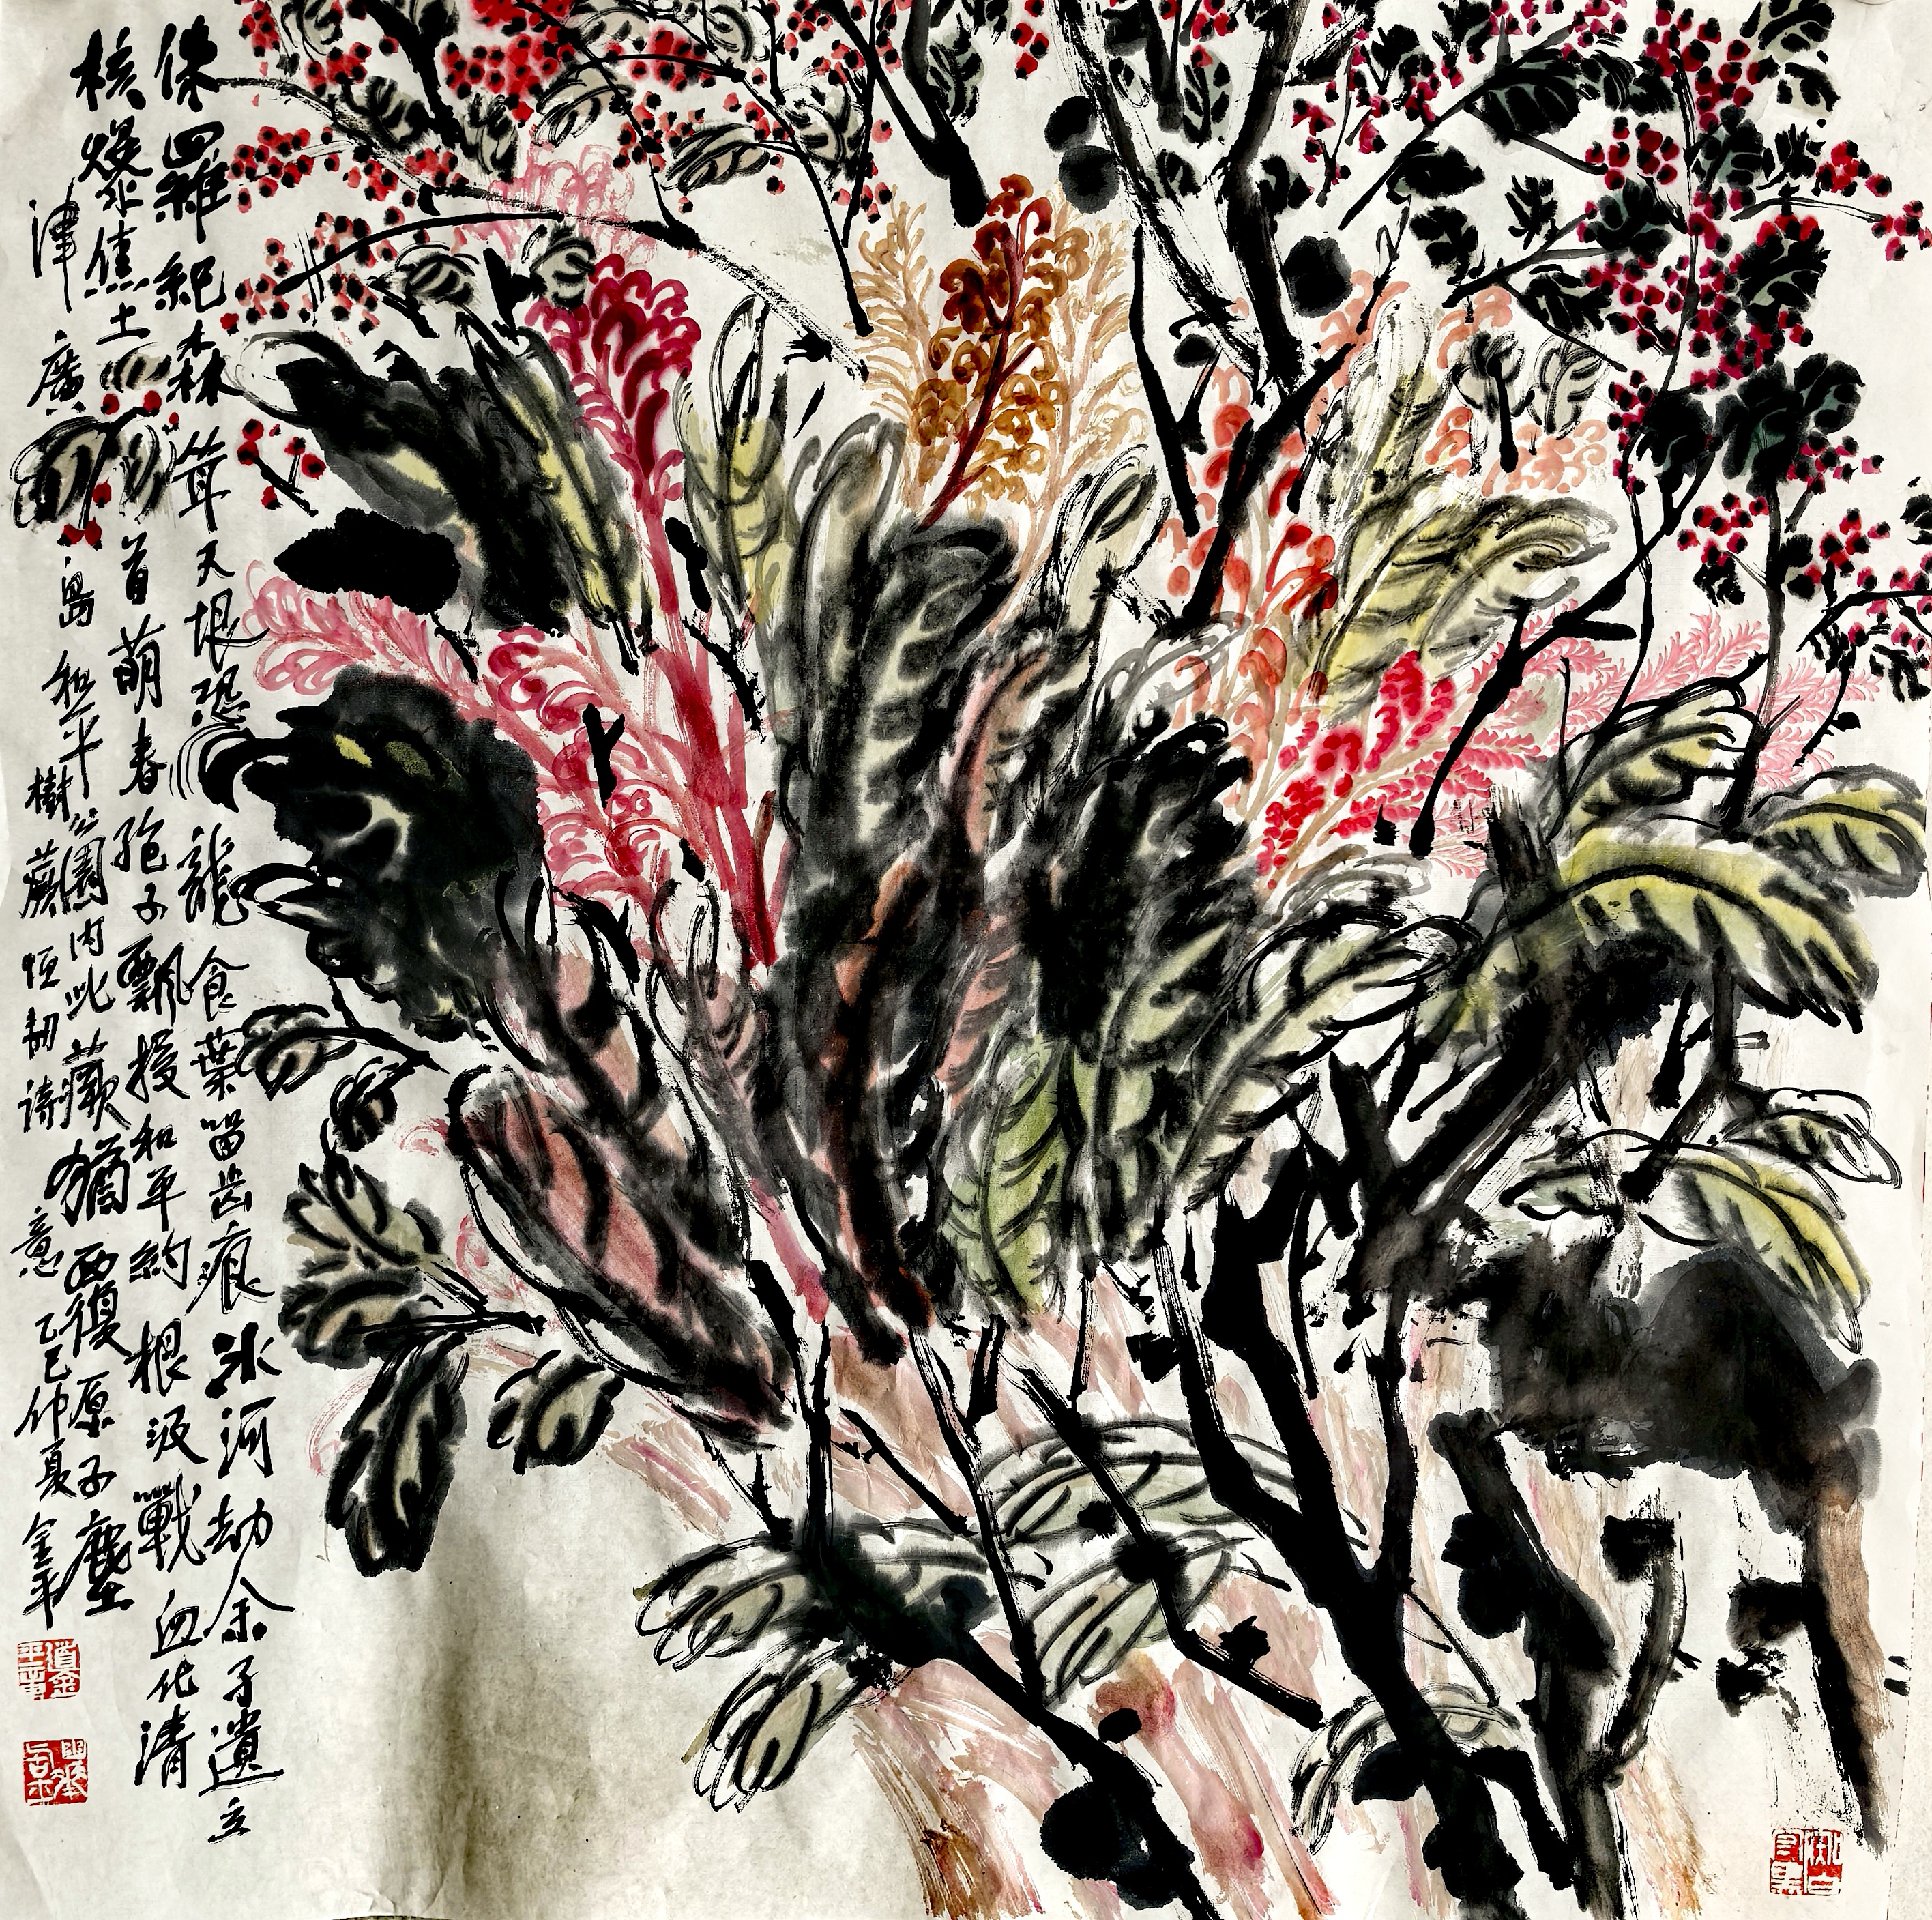 侏羅紀森茸天垠恐龍食葉留齿痕冰河劫余孑遺立
核爆焦土首萌春孢子飄授和平約根汲戰血化清
津廣島和平公園内此蕨猶覆原子塵
樹蕨恒韌诗意乙巳仲夏金平